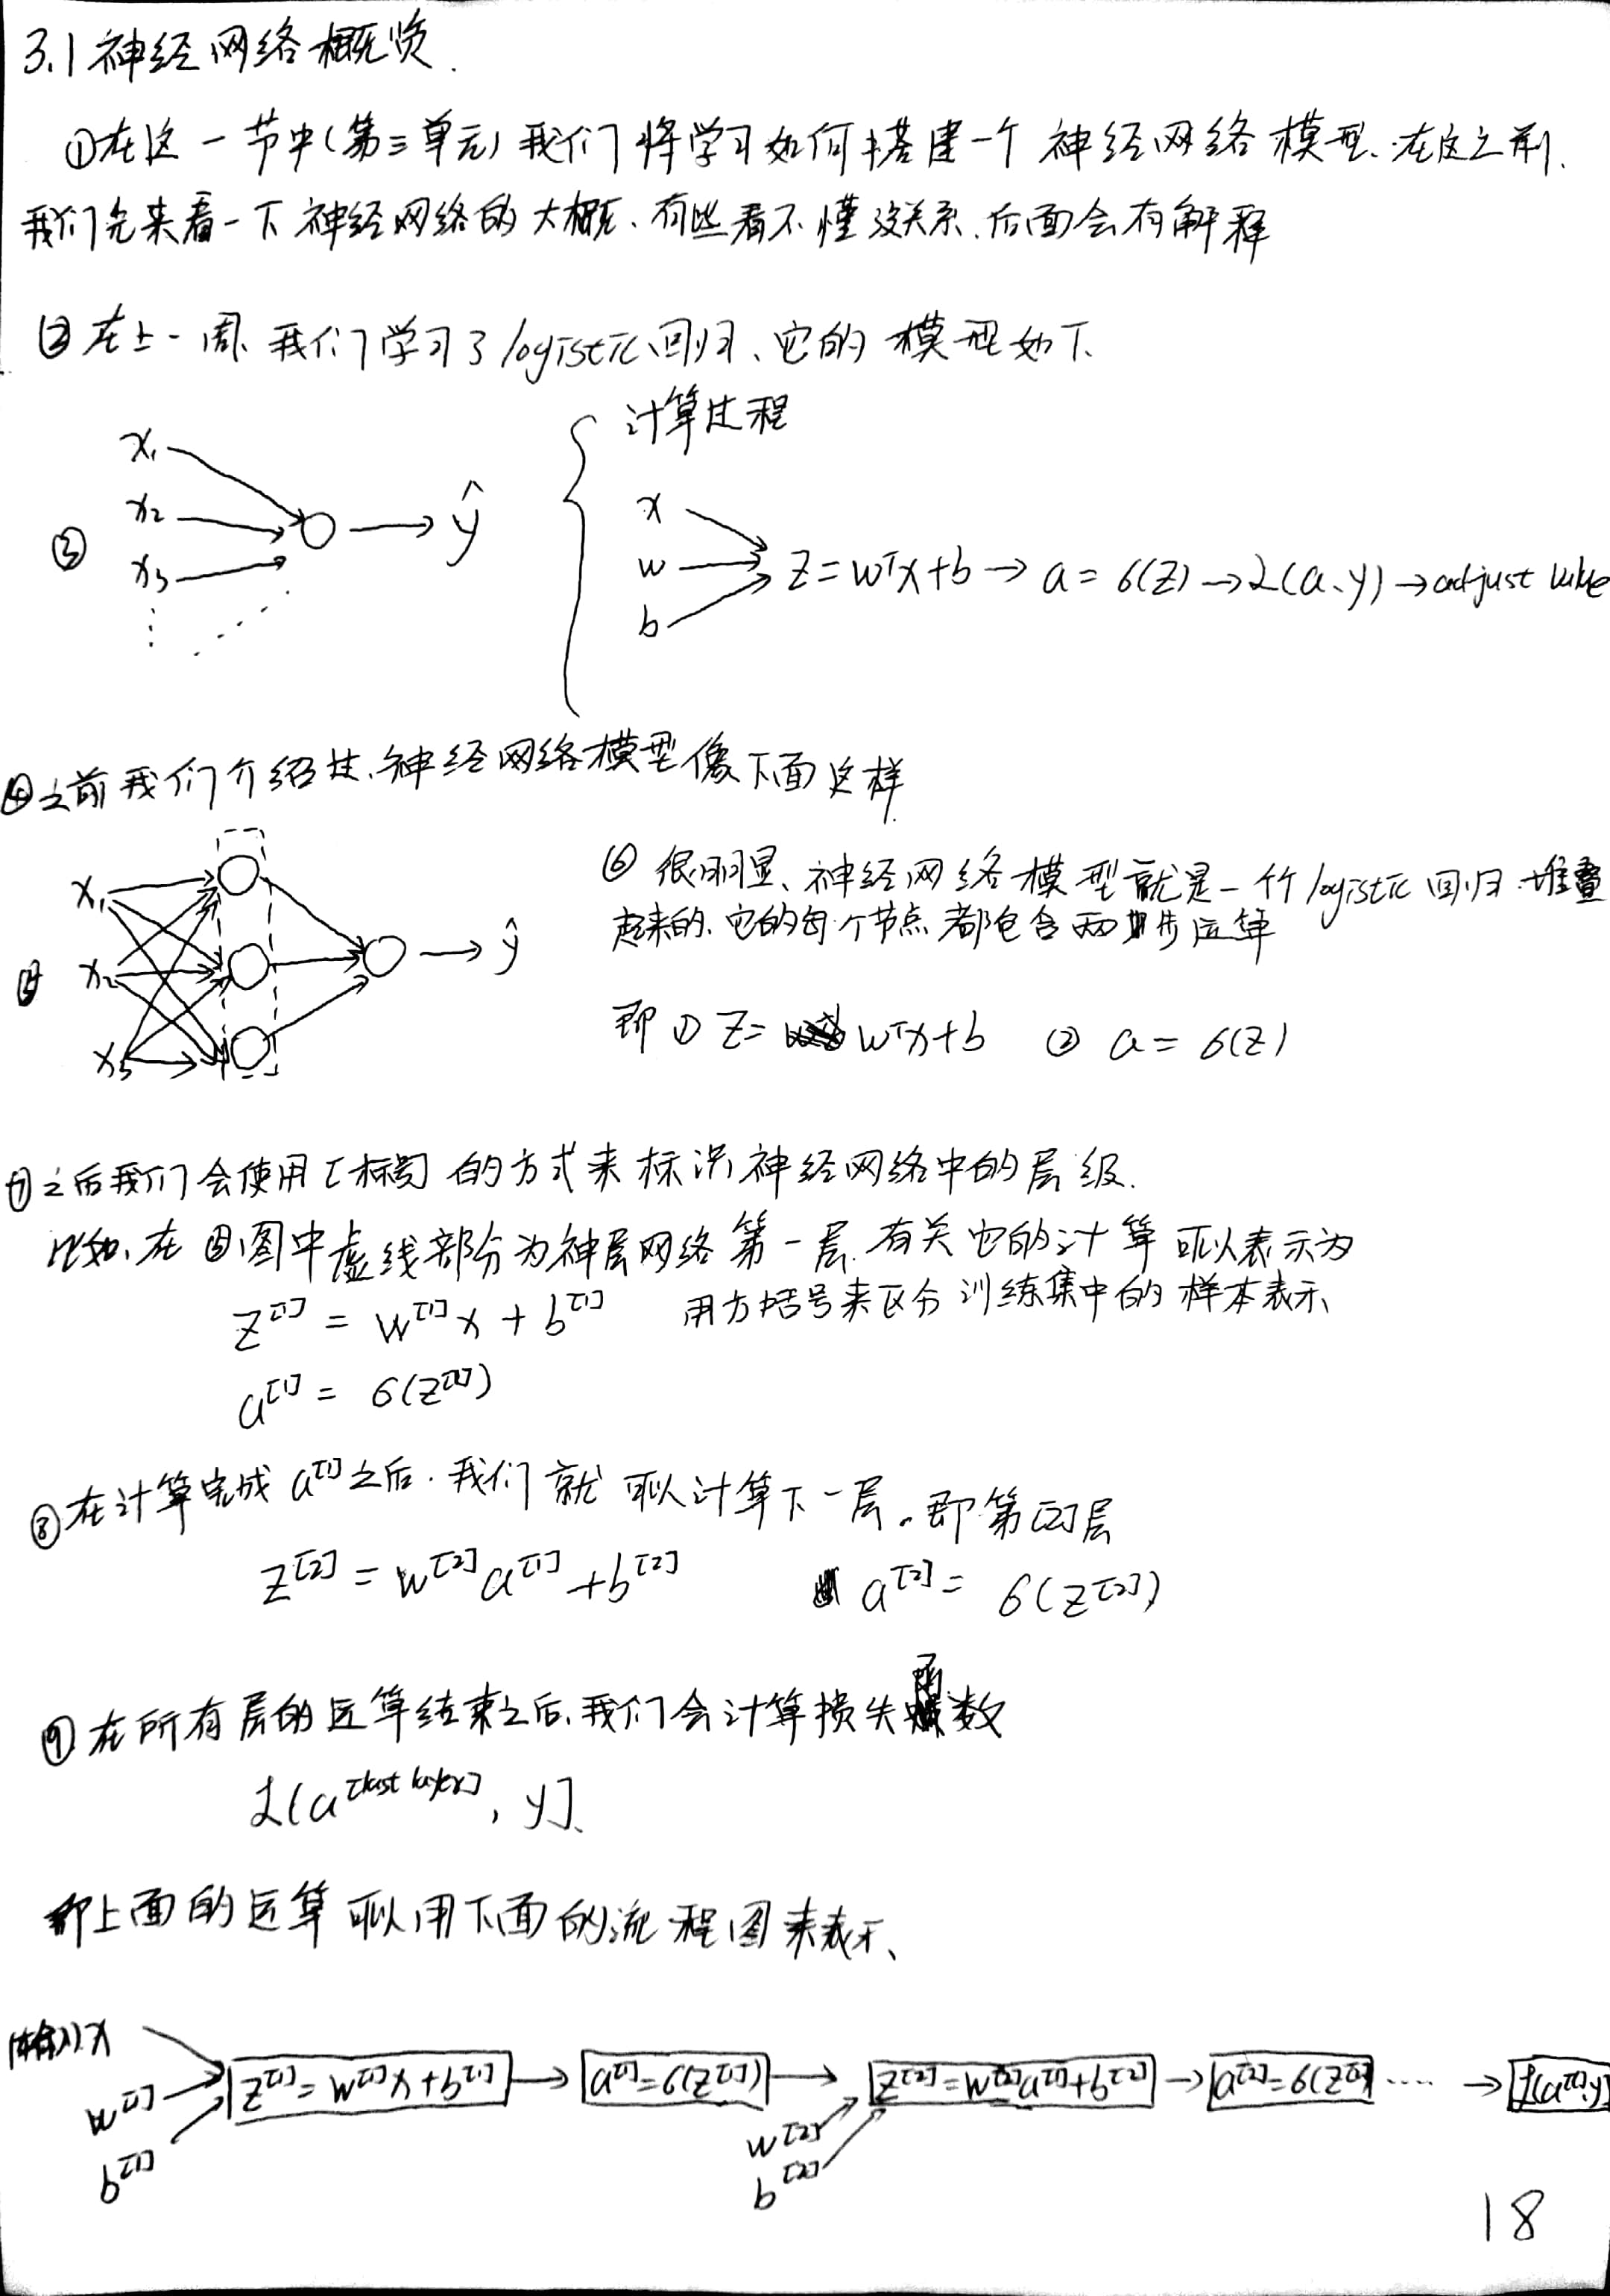 3.1 神经网络概览.
①在这一节中(第三单元)我们将学习如何搭建一个神经网络模型、在这之前、
我们先来看一下神经网络的大概、有些看不懂没关系、后面会有解释
②在上一周、我们学习了logistic回归、它的模型如下、
计算过程
③
x₁
x₂
x₃
⋮
ŷ
x
w
b
z = wᵀx + b → a = 6(z) → L(a、y) → adjust
④之前我们介绍过、神经网络模型像下面这样
⑤
x₁
x₂
x₃
ŷ
⑥ 很明显、神经网络模型就是一个个logistic回归堆叠
起来的、它的每个节点都包含两步运算
即 ① z = wᵀx + b ② a = 6(z)
⑦之后我们会使用[标号]的方式来标识神经网络中的层级.
比如、在⑤图中虚线部分为神层网络第一层、有关它的计算可以表示为
z^[1] = w^[1]x + b^[1] 用方括号来区分训练集中的样本表示、
a^[1] = 6(z^[1])
⑧在计算完成a^[1]之后、我们就可以计算下一层。即第[2]层
z^[2] = w^[2]a^[1] + b^[2] a^[2] = 6(z^[2])
⑨在所有层的运算结束之后、我们会计算损失函数
L(a^[last layer], y]、
即上面的运算可以用下面的流程图来表示、
输入x
w^[1]
b^[1]
z^[1] = w^[1]x + b^[1] → a^[1] = 6(z^[1]) → z^[2] = w^[2]a^[1] + b^[2] → a^[2] = 6(z^[2]) ····· →
w^[2]
b^[2]
18